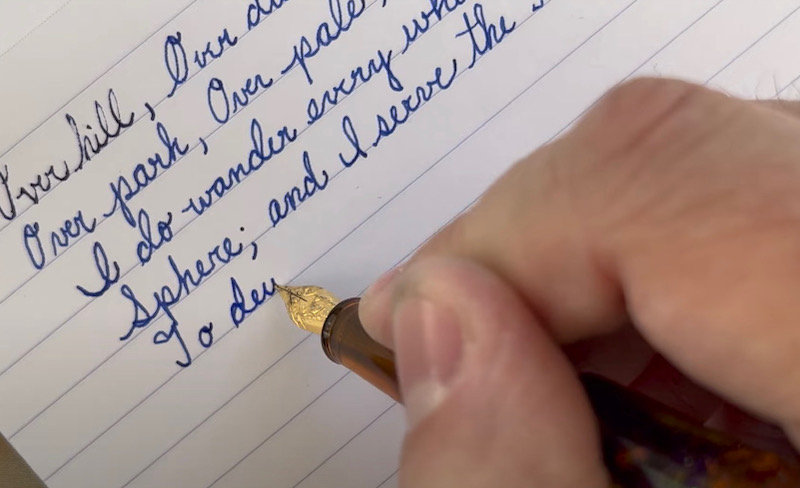 Over hill, Over da
Over park, Over pale,
I do wander every whe
Sphere; and I serve the
To dew